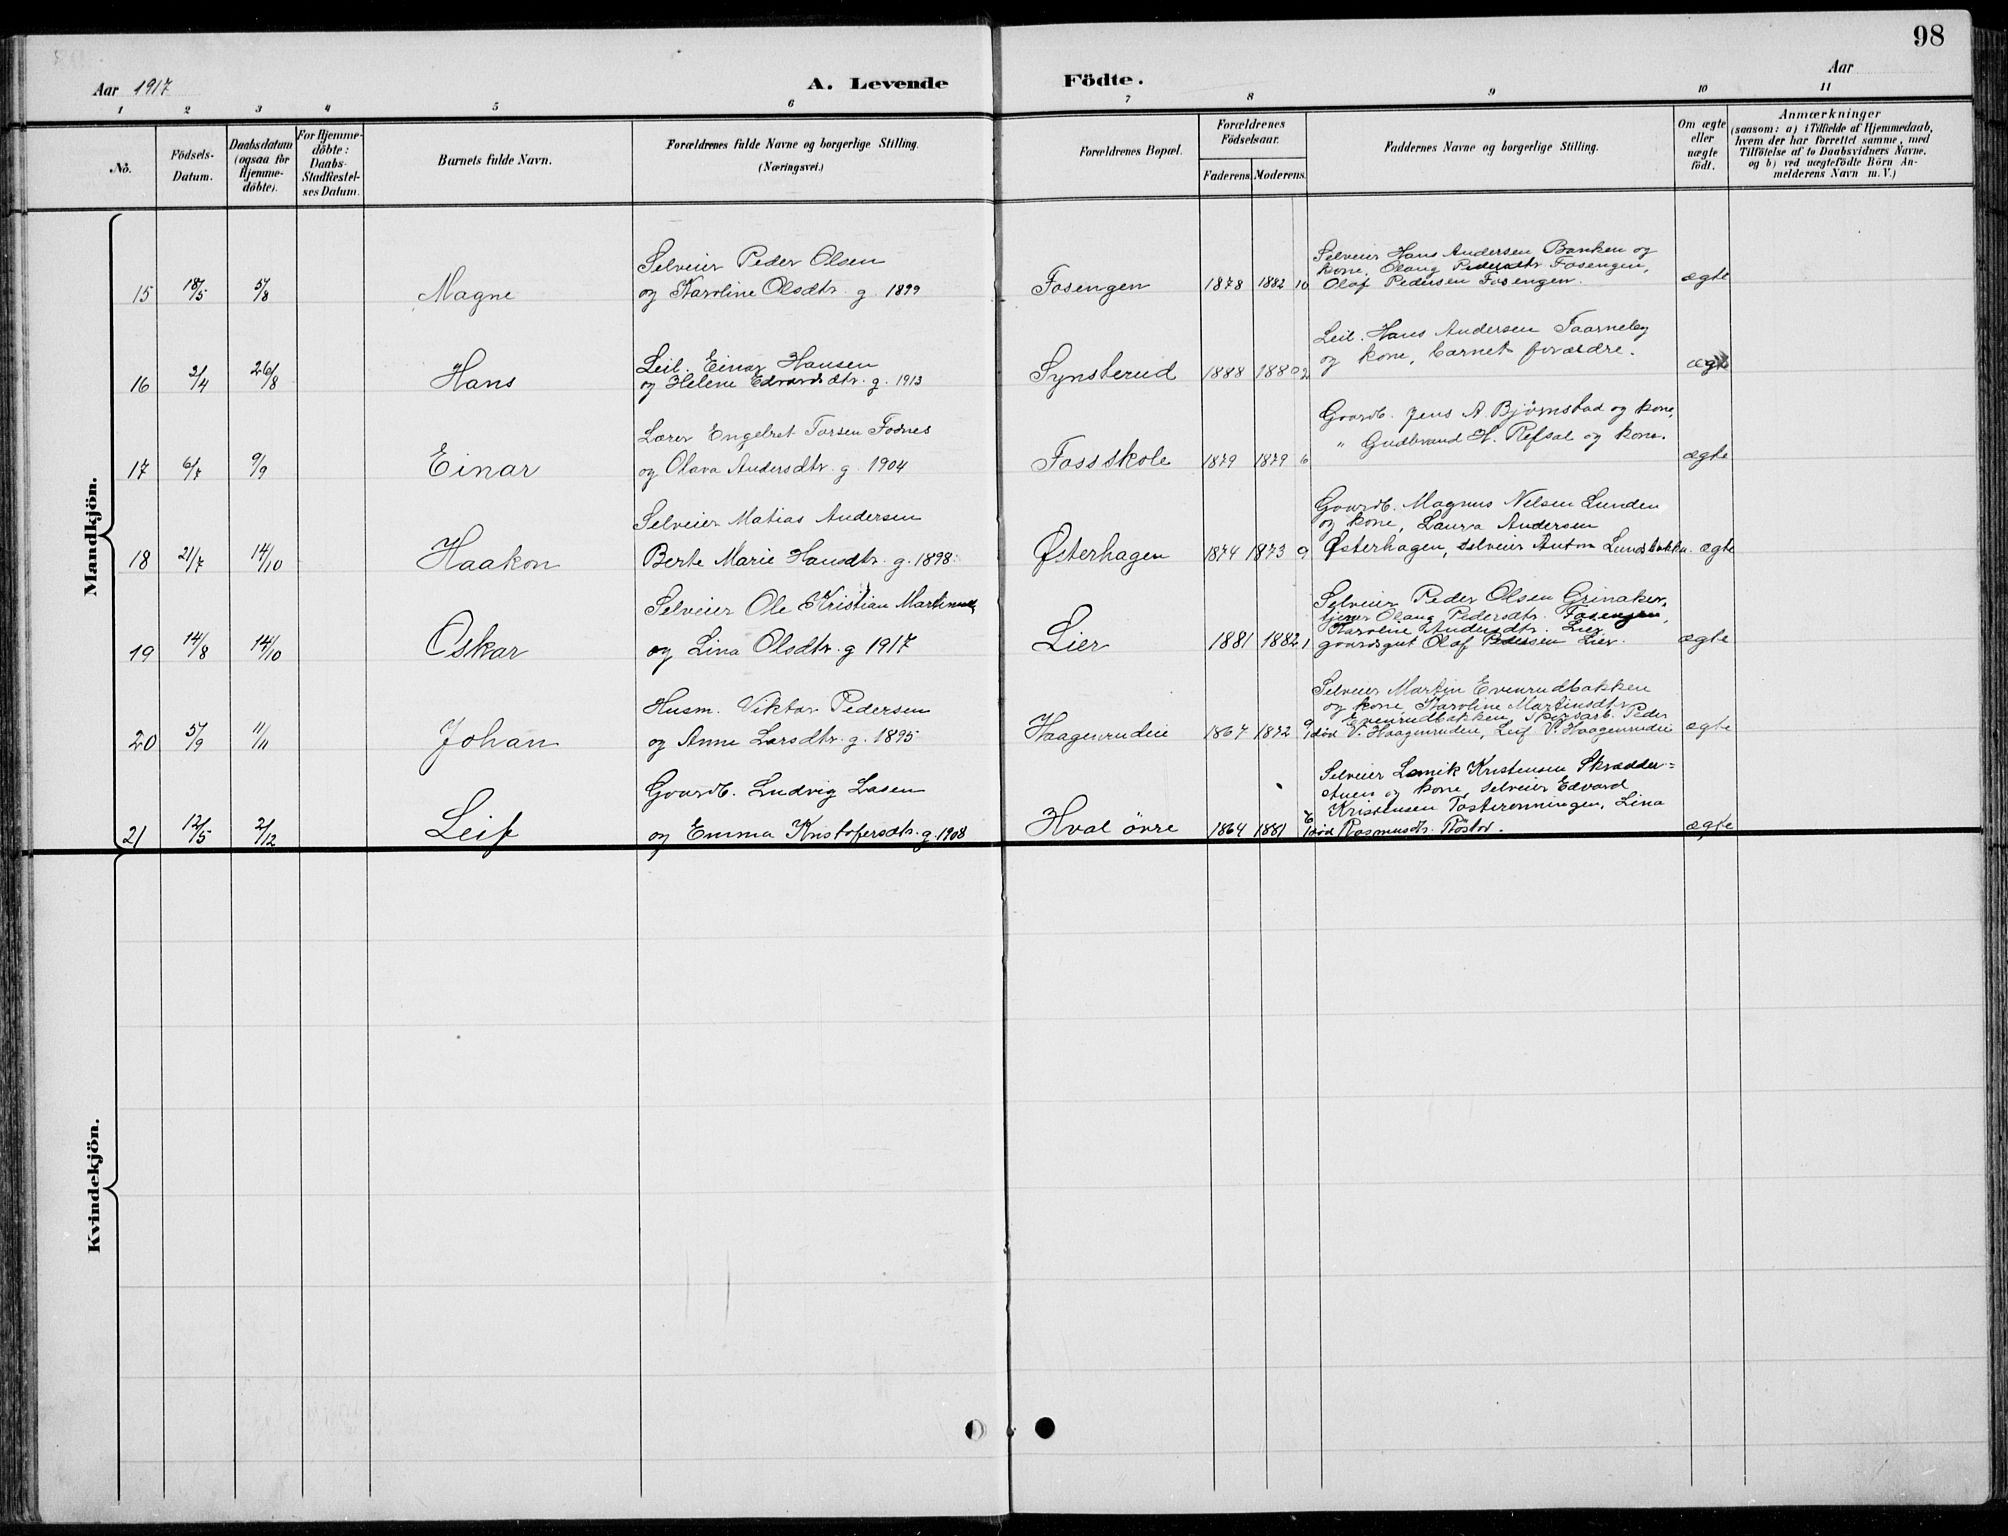 98
Aar 1917
A. Levende
Födte.
Aar
1 2 3 4 5 6 7 8 9 10 11
No.
Födsels-
Datum.
Daabsdatum
(ogsaa for
Hjemme-
döbte).
For Hjemme-
döbte:
Daabs-
Stadfæstel-
ses Datum.
Barnets fulde Navn.
Forældrenes fulde Navne og borgerlige Stilling.
(Næringsvei.)
Forældrenes Bopæl.
Forældrenes
Födselsaar.
Faderens. Moderens.
Faddernes Navne og borgerlige Stilling.
Om ægte
eller
uægte
födt.
Anmærkninger
(saasom: a) i Tilfælde af Hjemmedaab,
hvem der har forrettet samme, med
Tilförelse af to Daabsvidners Navne,
og b) ved uægtefödte Börn An-
melderens Navn m. V.)
Mandkjön.
15 18/5 5/8 Magne
Selveier Peder Olsen
og Karoline Olsdtr. g. 1899
Fosengen 1878 1882 10
Selveier Hans Andersen Banken og
kone, Olaug Pedersdtr Fosengen,
Olaf Pedersen Fosengen.
ægte
16 3/4 26/8 Hans
Leil. Einar Hansen
og Helene Edvardsdtr. g. 1913
Synsterud 1888 1880 2
Leil. Hans Andersen Taarneby
og kone, barnets forældre.
ægte
17 6/7 9/9 Einar
Lærer Engebret Torsen Fosnes
og Olava Andersdtr. g. 1904
Fossskole 1879 1879 6
Gaardb. Jens A. Bjørnstad og kone,
" Gudbrand H. Refsal og kone.
ægte
18 21/7 14/10 Haakon
Selveier Matias Andersen
Berte Marie Hansdtr. g. 1898.
Østerhagen 1874 1873 9
Gaardb. Magnus Nelsen Lunden
og kone, Laura Andersen
Østerhagen, selveier Anton Lundsbakken.
ægte
19 14/8 14/10 Oskar
Selveier Ole Kristian Martinsen
og Lina Olsdtr. g 1917
Lier 1881 1882 1
Selveier Peder Olsen Grinaker,
tjener Olaug Pedersdtr. Fosengen,
Karoline Andersdtr. Lier,
gaardsgut Olaf Pedersen Lier.
ægte
20 5/9 11/11 Johan
Husm. Viktor Pedersen
og Anne Larsdtr. g. 1895
Haagenrudeie 1867 1872 9 1 død
Selveier Martin Evenrudbakken
og kone Karoline Martinsdtr.
Evenrudbakken, Peder
V. Haagenrudeie, Leif V. Haagenrudeie
ægte
21 12/5 2/12 Leif
Gaardb. Ludvig Lasen
og Emma Kristofersdtr. g. 1908
Hval övre 1864 1881 6 1 død
Selveier Kristensen Skrædder-
stuen og kone, selveier Edvard
Kristensen Lina
Rasmusdtr.
ægte
Kvindekjön.